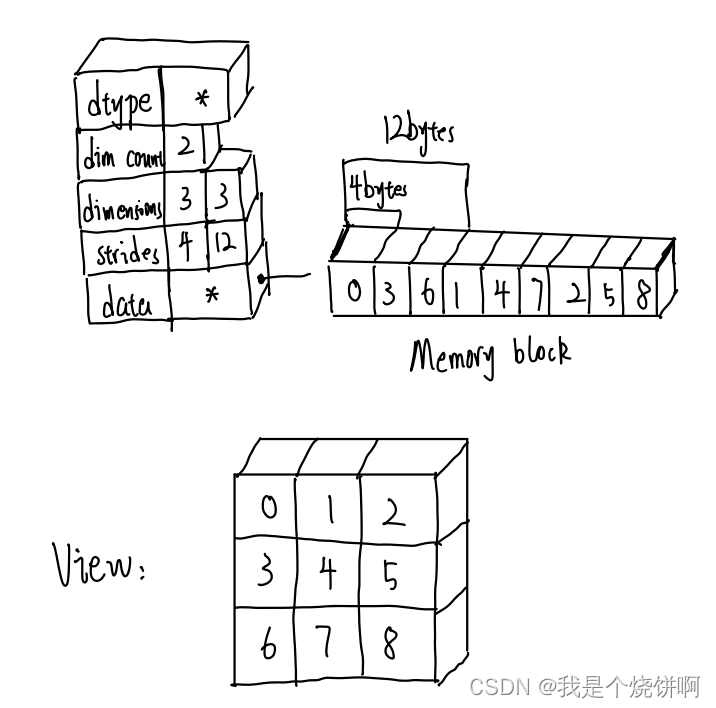 dtype *
dim count 2
dimensions 3 3
strides 4 12
data *
12bytes
4bytes
0 3 6 1 4 7 2 5 8
Memory block
View:
0 1 2
3 4 5
6 7 8
CSDN @我是个烧饼啊